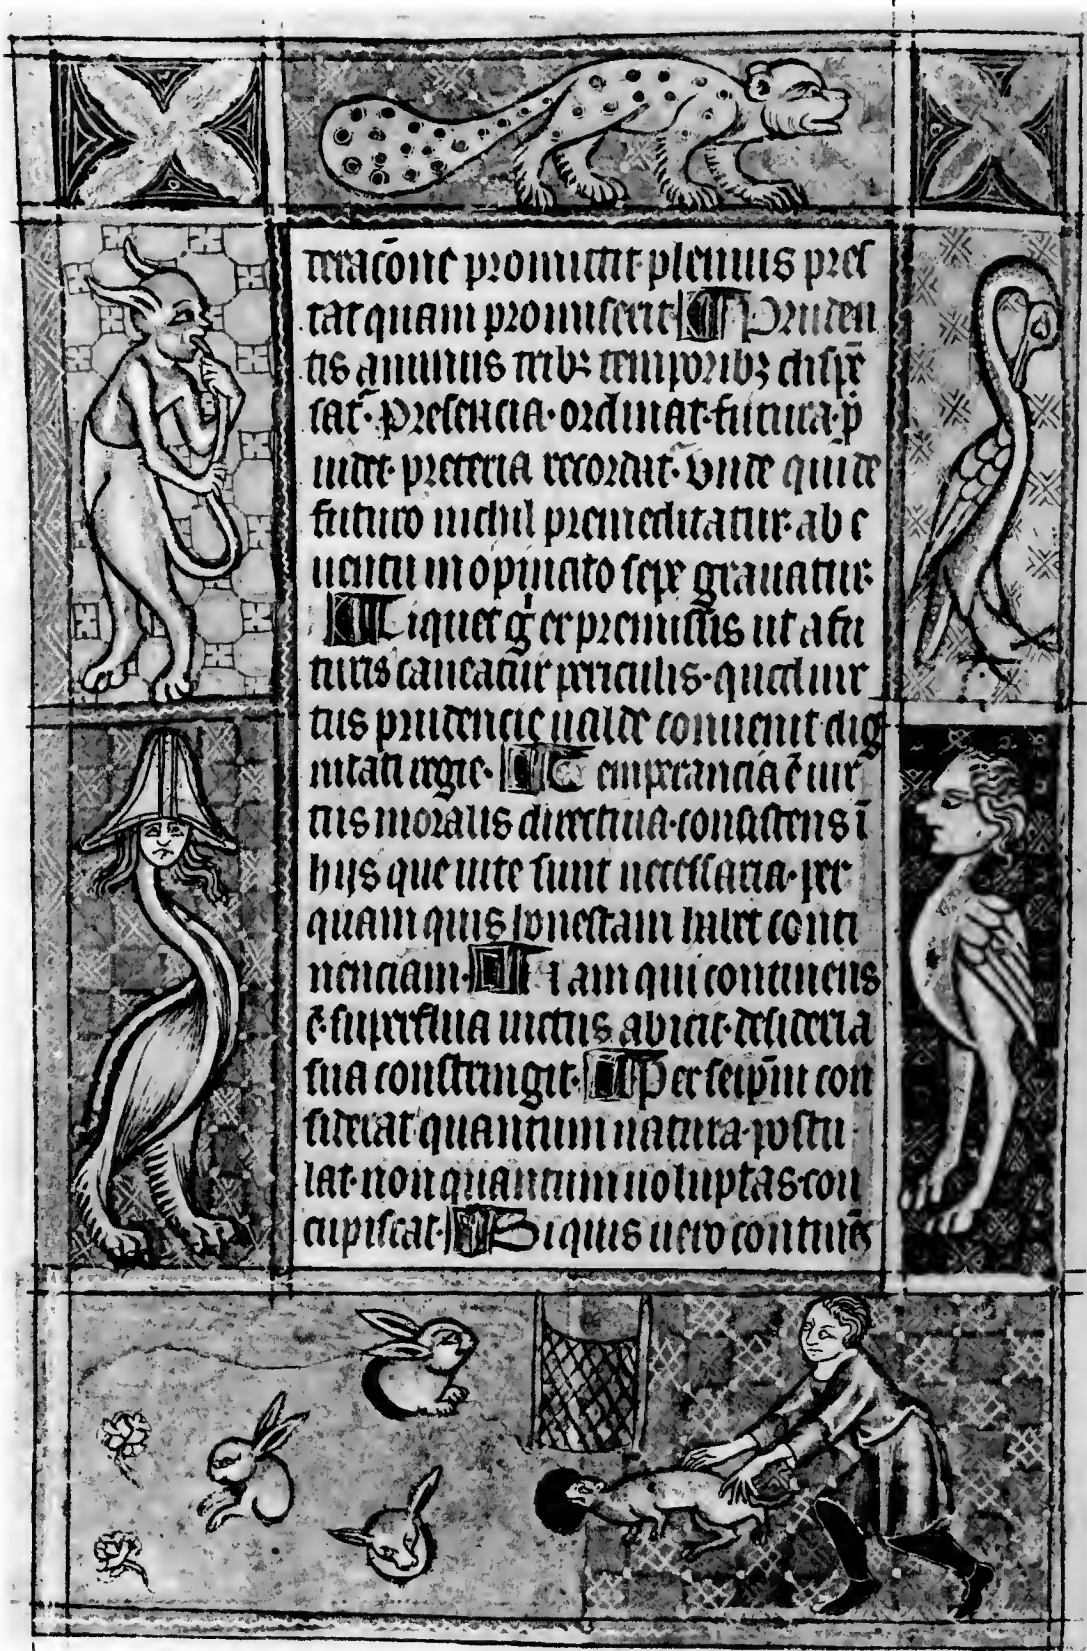 teracōne promittit· plenius pres
tat quam promiserit· Pruden
tis animus trib; temporib; dispē
sat᷑· Presencia· ordinat· futura· p̄
uidet· preteria recordat᷑· Vnde qui de
futuro nichil premeditatur· ab e
uentu in opinato sepe grauatur·
Liquet gͥ ex premissis ut a fu
turis caueatur periculis· quod uir
tus prudencie ualde conuenit dig
nitati regie· Temperancia ē uir
tus moralis directiua· consistens ī
hijs que uite sunt necessaria· per
quam quis honestam habet conti
nenciam· Nam qui continens
ē· superflua uictus abicit· desideria
sua constringit· Per seip̄m con
siderat quantum natura postu
lat· non quantum uoluptas con
cupiscat· Si quis uero continēs